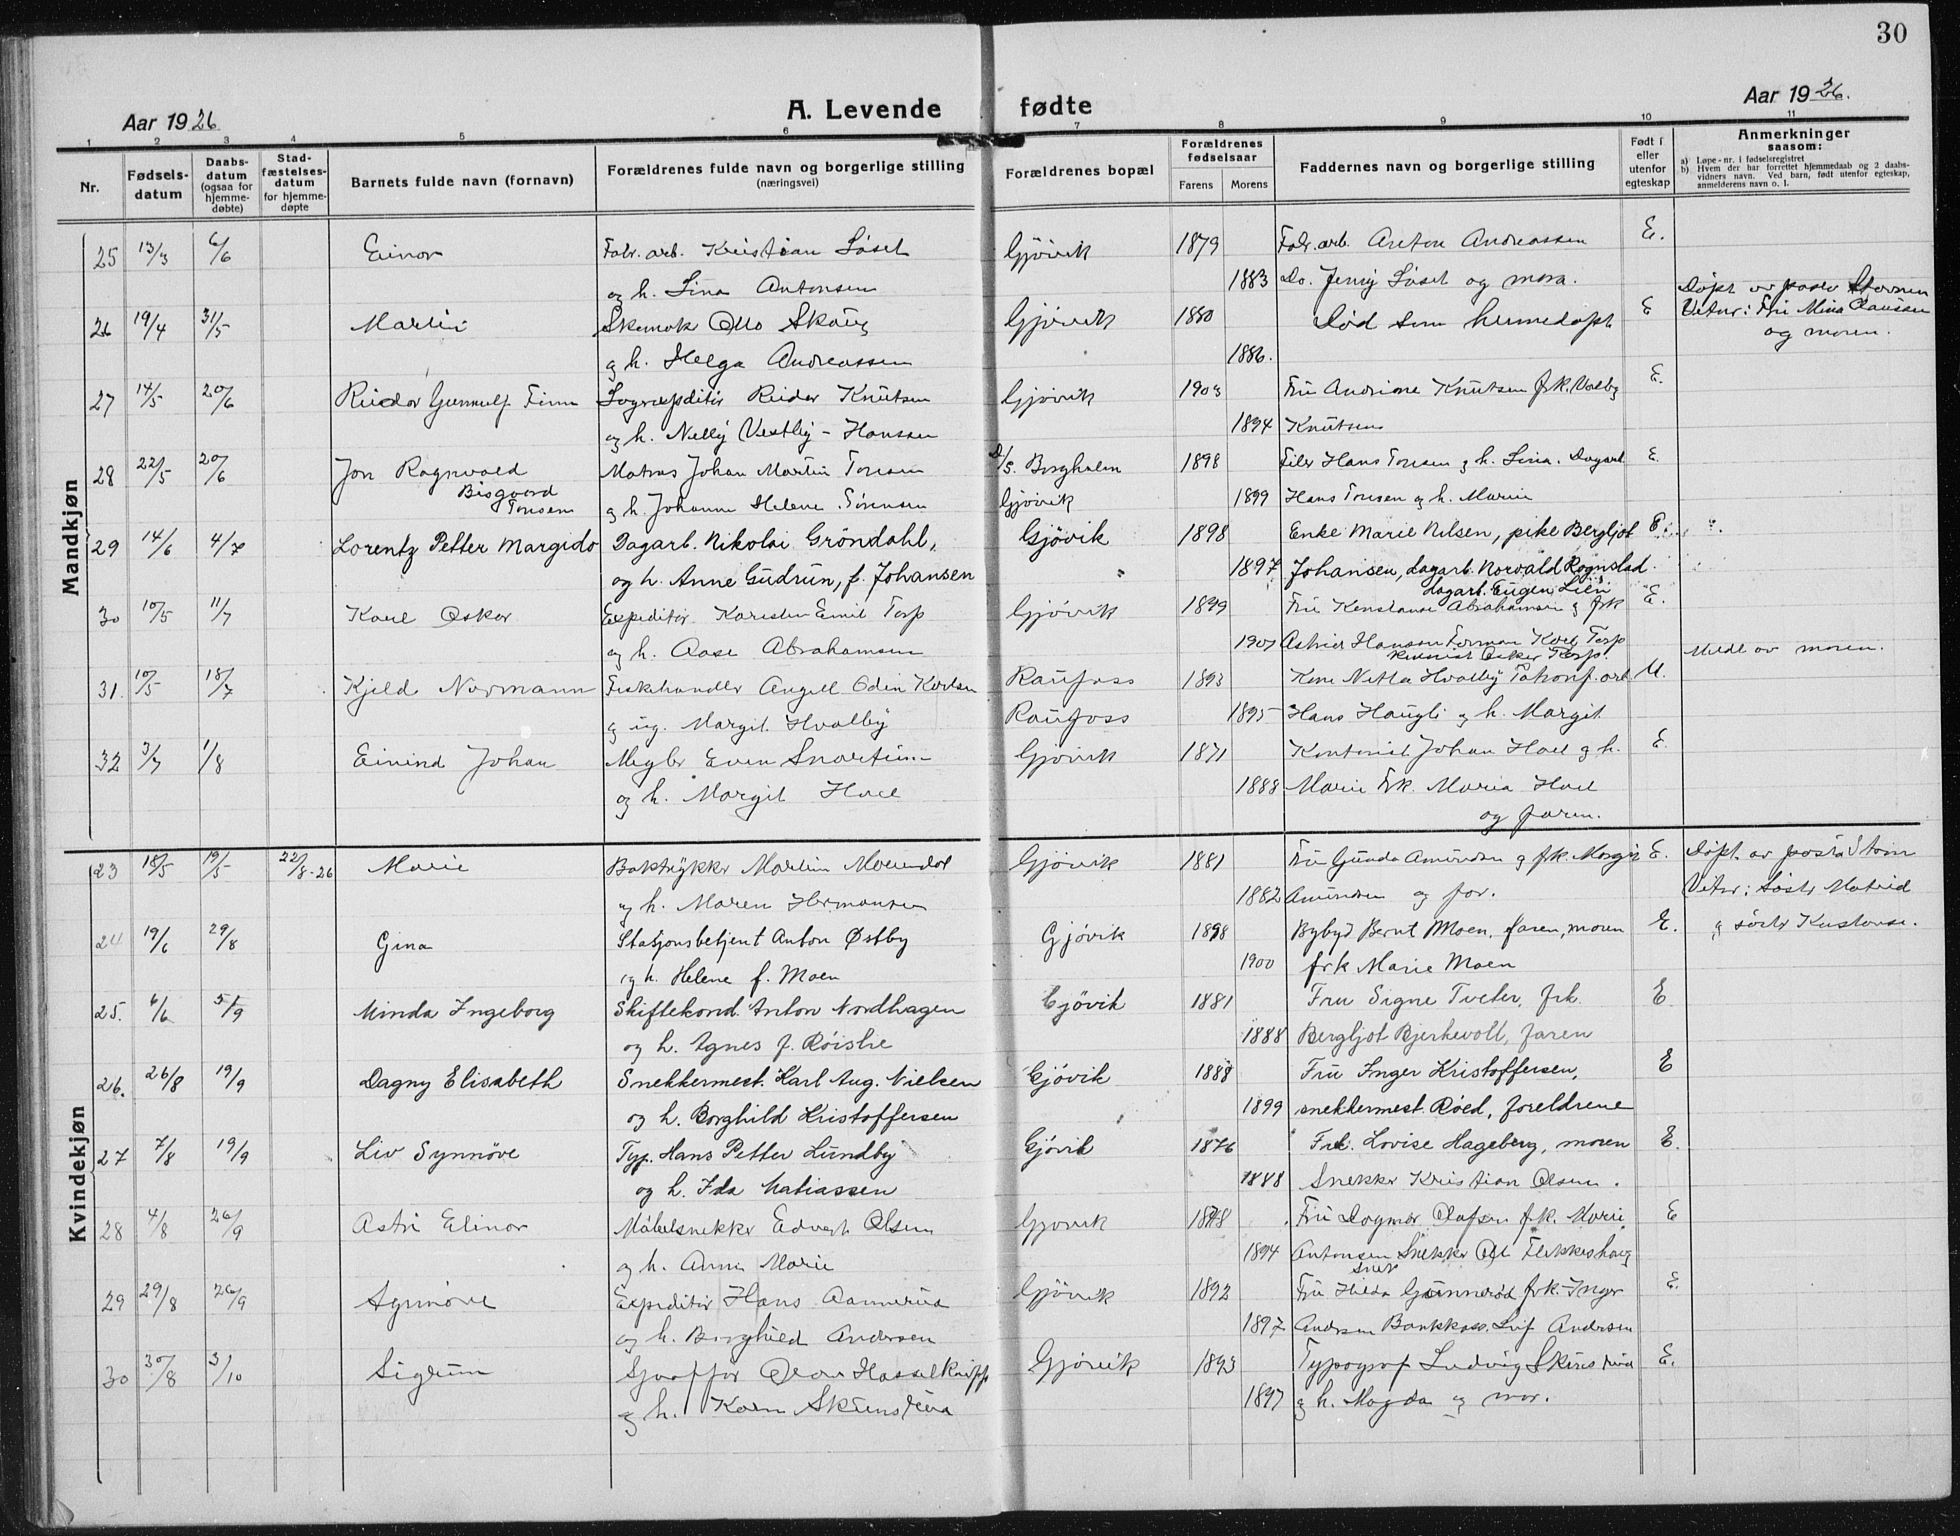 30
Aar 1926
A. Levende fødte
Aar 1926.
1 2 3 4 5 6 7 8 9 10 11
Nr.
Fødselsdatum
Daabsdatum (ogsaa for hjemmedøbte)
Stadfæstelsesdatum for hjemmedøpte
Barnets fulde navn (fornavn)
Forældrenes fulde navn og borgerlige stilling (næringsvei)
Forældrenes bopæl
Forældrenes fødselsaar
Farens Morens
Faddernes navn og borgerlige stilling
Født i eller utenfor egteskap
Anmerkninger saasom:
a) Løpe-nr. i fødselsregistret
b) Hvem der har forrettet hjemmedaab og 2 daabsvidners navn. Ved barn, født utenfor egteskap, anmelderens navn o. l.
Mandkjøn
25 13/3 6/6 Einar Fabr. arb. Kristian Løset Gjövik 1879 Fabr. arb. Anton Andreassen E.
og h. Lina Antonsen 1883 Do. Jenny Løset og mora.
26 19/4 31/5 Martin Skomak Otto Skaug Gjövik 1880 Død som hjemedøpt E Døpt av pastor
og h. Helga Andreassen 1886. Vitner: Fru Mina og moren.
27 14/5 20/6 Reidar Finn Reidar Knutsen Gjövik 1903 Fru Andrine Knutsen frk. E.
og h. Nelly Vestby-Hanssen 1894 Knutsen
28 22/5 20/6 Jon Ragnvald Bisgaard Tonsen Matros Johan Martin Tonsen D/S. Borgholm 1898 Hans Tonsen og h. Lina. Dagarb. E.
og h. Johanne Helene Sørensen Gjövik 1899 Hans Tonsen og h. Marie
29 14/6 4/7 Lorentz Petter Margido Dagarb. Nikolai Gröndahl, Gjövik 1898 Enke Marie Nilsen, pike Bergljot E.
og h. Anne Gudrun, f. Johansen " 1897 Johansen, dagarb. Norvald Rognstad
dagarb. Eugen Lien
30 10/5 11/7 Karl Oskar Expeditör Karsten Emil Torp Gjövik 1899 Fru Konstanse Abrahamsen og frk E.
og h. Aase Abrahamsen 1901 Astrid Hansen Forman Karl Torp
Oskar Torp.
31. 10/5 18/7 Kjeld Normann Fiskehandler Angell Odin Karlsen Raufoss 1893 Kone Netta Hvalby Tobakf. arb U. Meldt av moren.
og ug. Margit Hvalby Raufoss 1895 Hans Haugli og h. Margit
32 3/7 1/8 Eivind Johan Megler Even Snartum Gjövik 1871 Kontorist Johan Hoel og h. E.
og h. Margit Hoel 1888 Marie Frk. Maria Hoel
og faren.
Kvindekjøn
23 18/5 19/5 22/8-26 Marie Boktrykker Martin Moendal Gjövik 1881 Fru Gunda Amundsen og frk. Margit E. Døpt av pastor
og h. Maren Hermansen 1882 Amundsen og far. Vitner: søster Matrid
24 19/6 29/8 Gina Stasjonsbetjent Anton Østby Gjövik 1898 Bybyd Bernt Moen, faren, moren E. og søster
og h. Helene f. Moen 1900 frk Marie Moen
25. 6/6 5/9 Minda Ingeborg Skiftekond. Anton Nordhagen Gjövik 1881 Fru Signe Tveter, frk. E
og h. Agnes f. Röislie 1888 Bergljot Bjerkevoll, faren
26. 26/8 19/9 Dagny Elisabeth Snekkermest. Karl Aug. Nielsen Gjövik 1888 Fru Inger Kristoffersen, E
og h. Borghild Kristoffersen 1899 snekkermest. Röed, foreldrene
27 7/8 19/9 Liv Synnöve Typ. Hans Petter Lundby Gjövik 1876 Frk. Lovise Hageberg, moren E.
og h. Ida Matiassen 1888 Snekker Kristian Olsen.
28 4/8 26/9 Astri Elinor Möbelsnekker Edvart Olsen Gjövik Fru Dagmar Olafsen frk. Marie E
og h. Anna Marie 1894 Antonsen Snekker
29 29/8 26/9 Synnøve Expeditör Hans Aannerud Gjövik 1892 Fru Hilda Gunnerød frk. Inger E.
og h. Borghild Andersen 1897 Andersen Bankkass. Leif Andersen
30 30/8 3/10 Sigrun Sjaaffør Olav Hasselknipp Gjövik 1893 Typograf Ludvig Skunsrud E.
og h. Karen Skundsrud 1897 og h. Magda og mor.